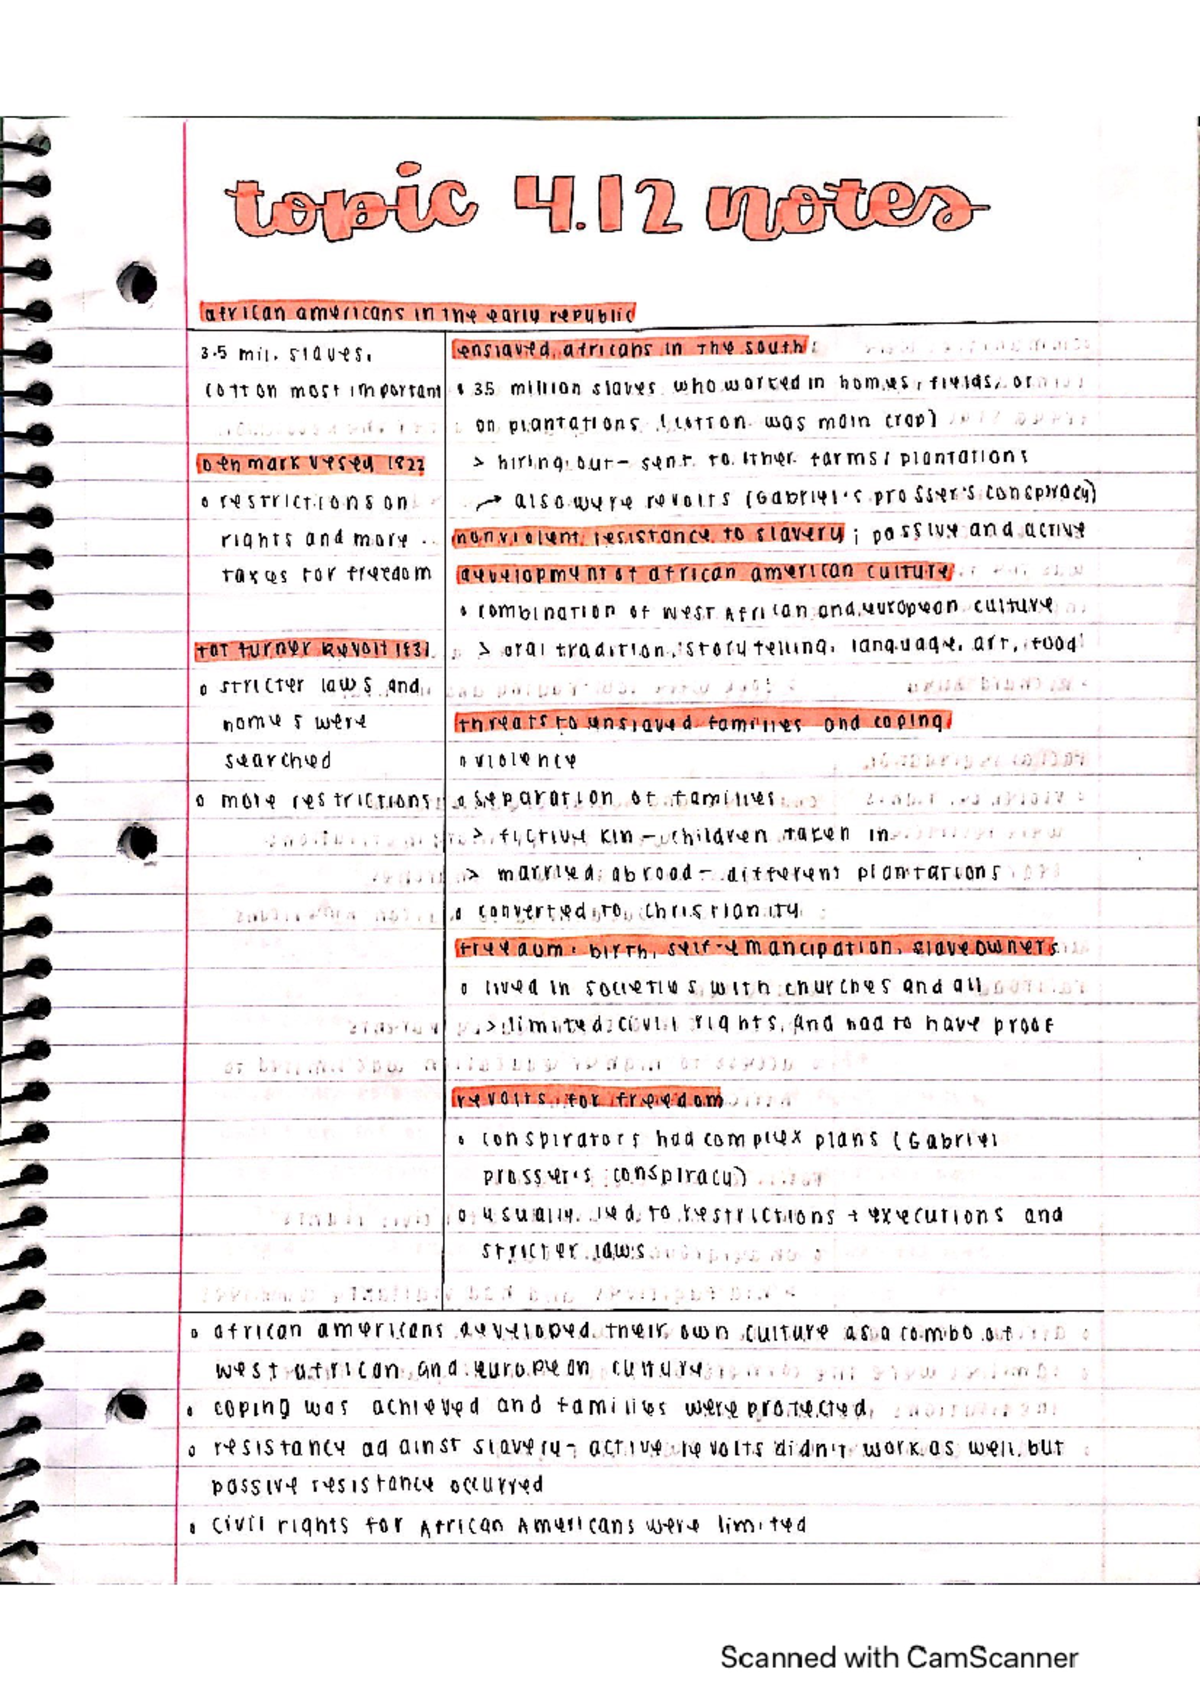 topic 4.12 notes
african americans in the early republic
3.5 mil. slaves,
cotton most important
Denmark Vesey 1822
restrictions on
rights and more
taxes for freedom
Nat turner Revolt 1831
stricter laws and
homes were
searched
more restrictions
enslaved africans in the south:
3.5 million slaves who worked in homes, fields, or
on plantations (cotton was main crop)
> hiring out- sent to other farms/plantations
→ also were revolts (Gabriel's prosser's conspiracy)
nonviolent resistance to slavery; passive and active
development of african american culture
combination of West African and european culture
> oral tradition, storytelling, language, art, food
threats to enslaved families and coping
violence
separation of families
> fictive kin - children taken in
> married abroad - different plantations
converted to Christianity
freedom: birth, self-emancipation, slaveowners
lived in societies with churches and all
> limited civil rights, and had to have proof
revolts for freedom
conspirators had complex plans (Gabriel
prosser's conspiracy)
usually led to restrictions + executions and
stricter laws
african americans developed their own culture as a combo of
west african and european culture
coping was achieved and families were protected
resistancy against slavery- active revolts didn't work as well, but
passive resistance occurred
civil rights for African Americans were limited
Scanned with CamScanner